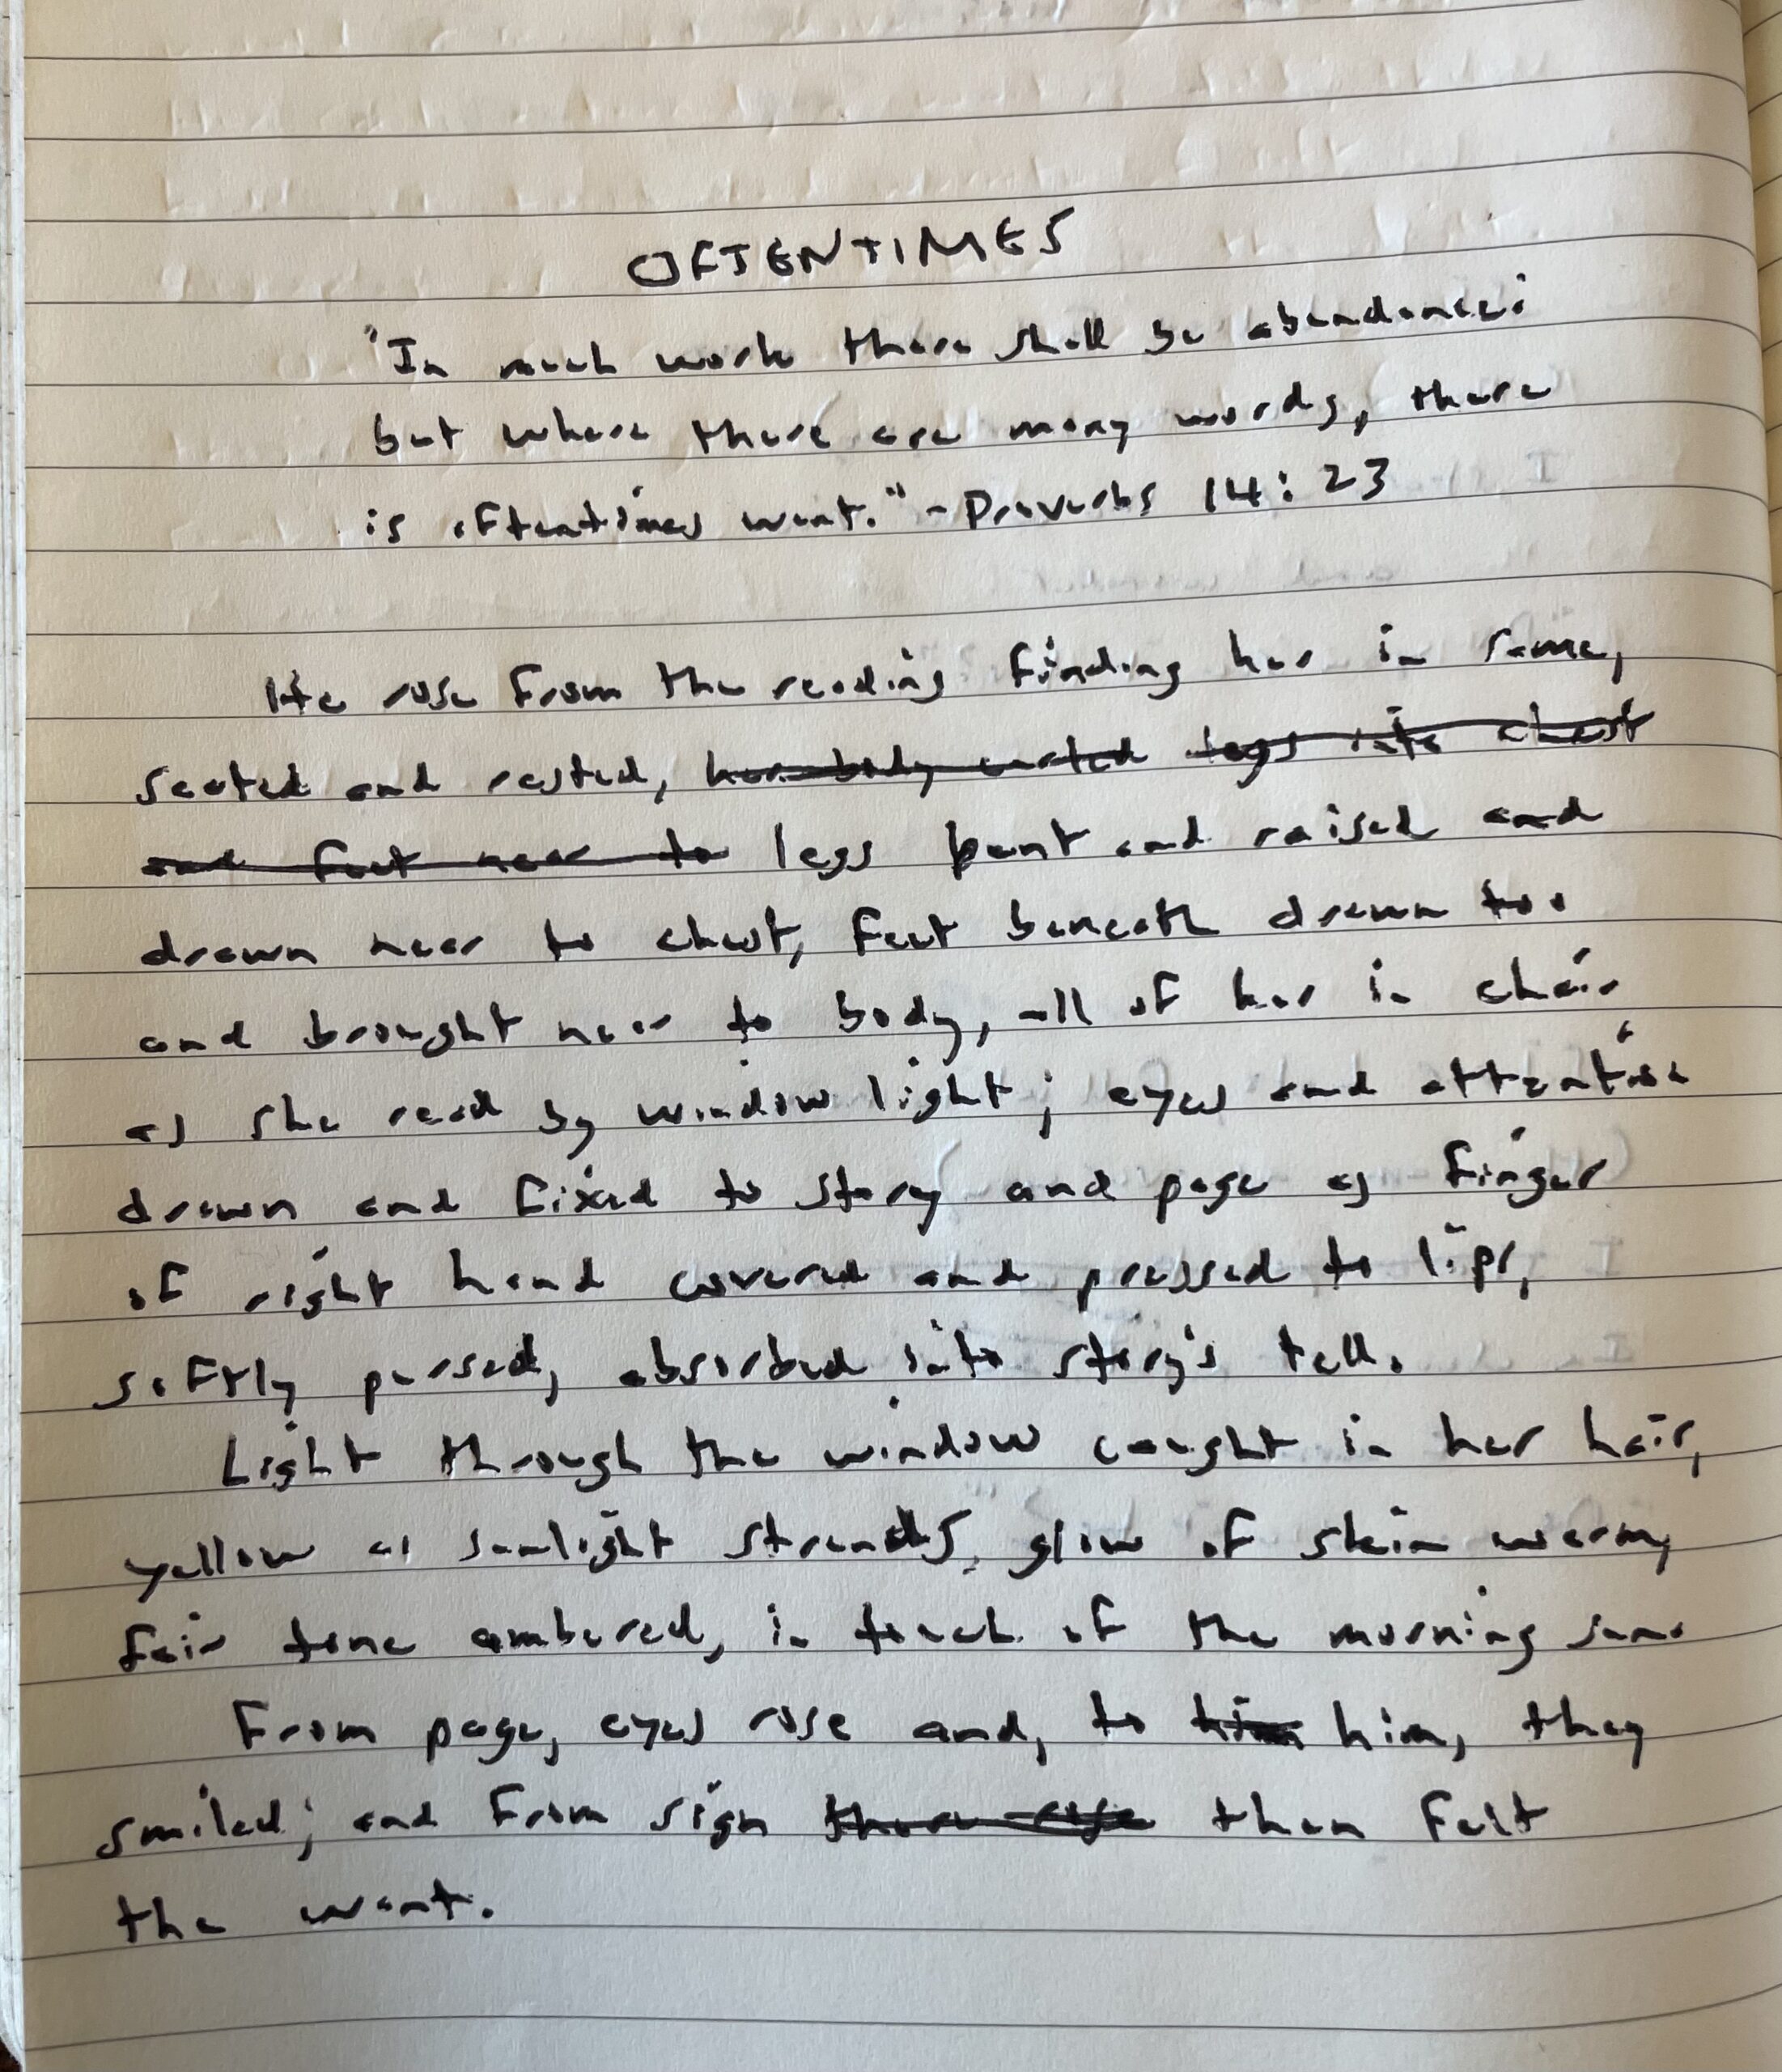 OFTENTIMES
"In much work there shall be abundance:
but where there are many words, there
is oftentimes want." - Proverbs 14:23
He rose from the reading finding her in same,
seated and rested, her body curled legs into chest
and feet near to legs bent and raised and
drawn near to chest, feet beneath drawn too
and brought near to body, all of her in chair
as she read by window light; eyes and attention
drawn and fixed to story and page as finger
of right hand covered and pressed to lips,
softly pursed, absorbed into story's tell.
Light through the window caught in her hair,
yellow as sunlight strands, glow of skin warm,
fair tone ambered, in touch of the morning sun.
From page, eyes rose and, to him him, they
smiled; and from sign there rose then felt
the want.